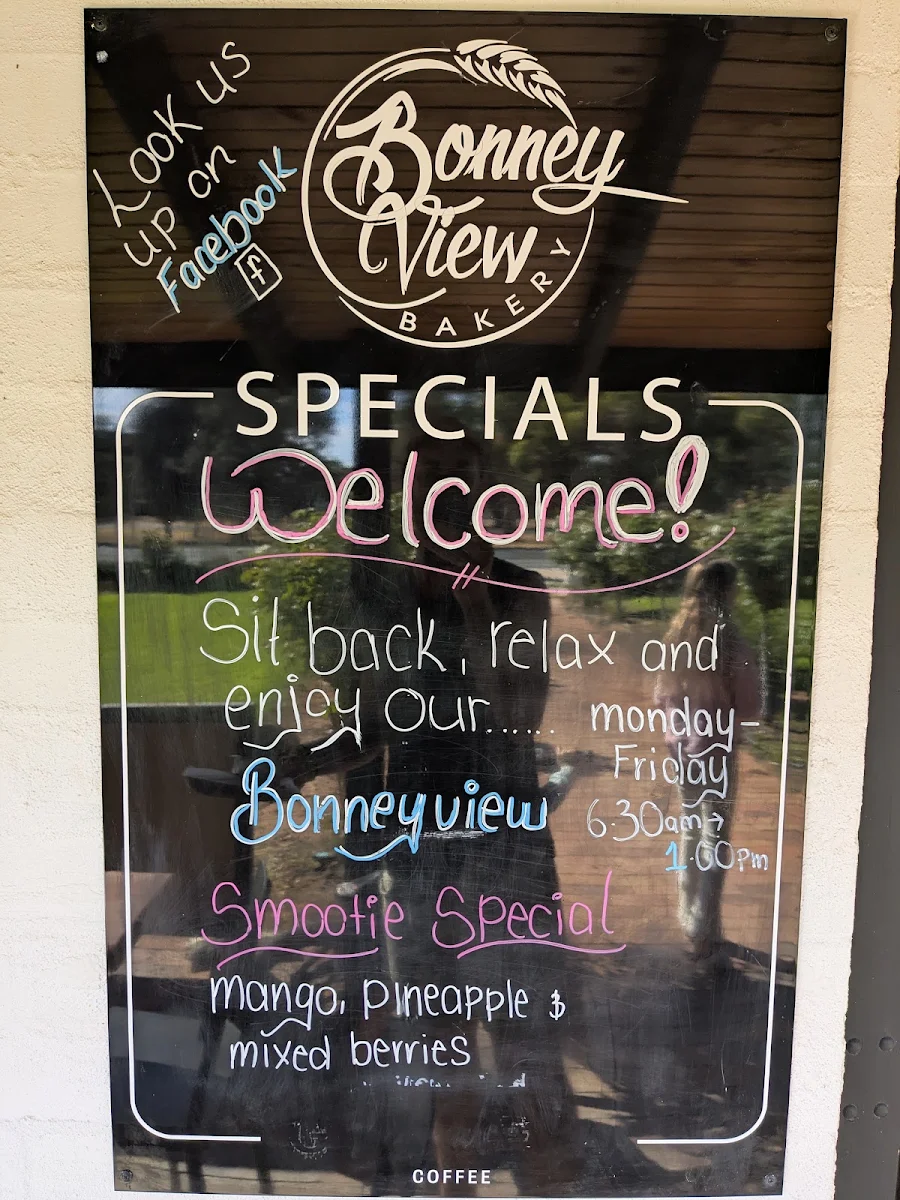 Look us
up on
Facebook
f
Bonney
View
BAKERY
SPECIALS
Welcome!
Sit back, relax and
enjoy our......
monday-
Friday
6.30am→
1.00pm
Bonneyview
Smootie Special
mango, pineapple $
mixed berries
COFFEE